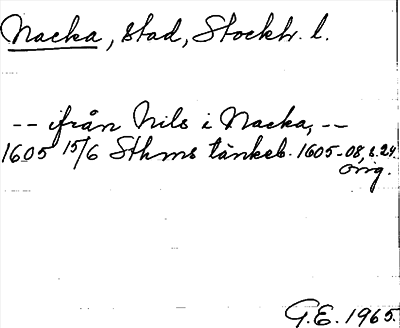 Nacka, stad, Stockh. l.
-- ifrån Nils i Nacka, --
1605 15/6 Sthms tänkeb. 1605-08, s. 24.
orig.
G.E. 1965.